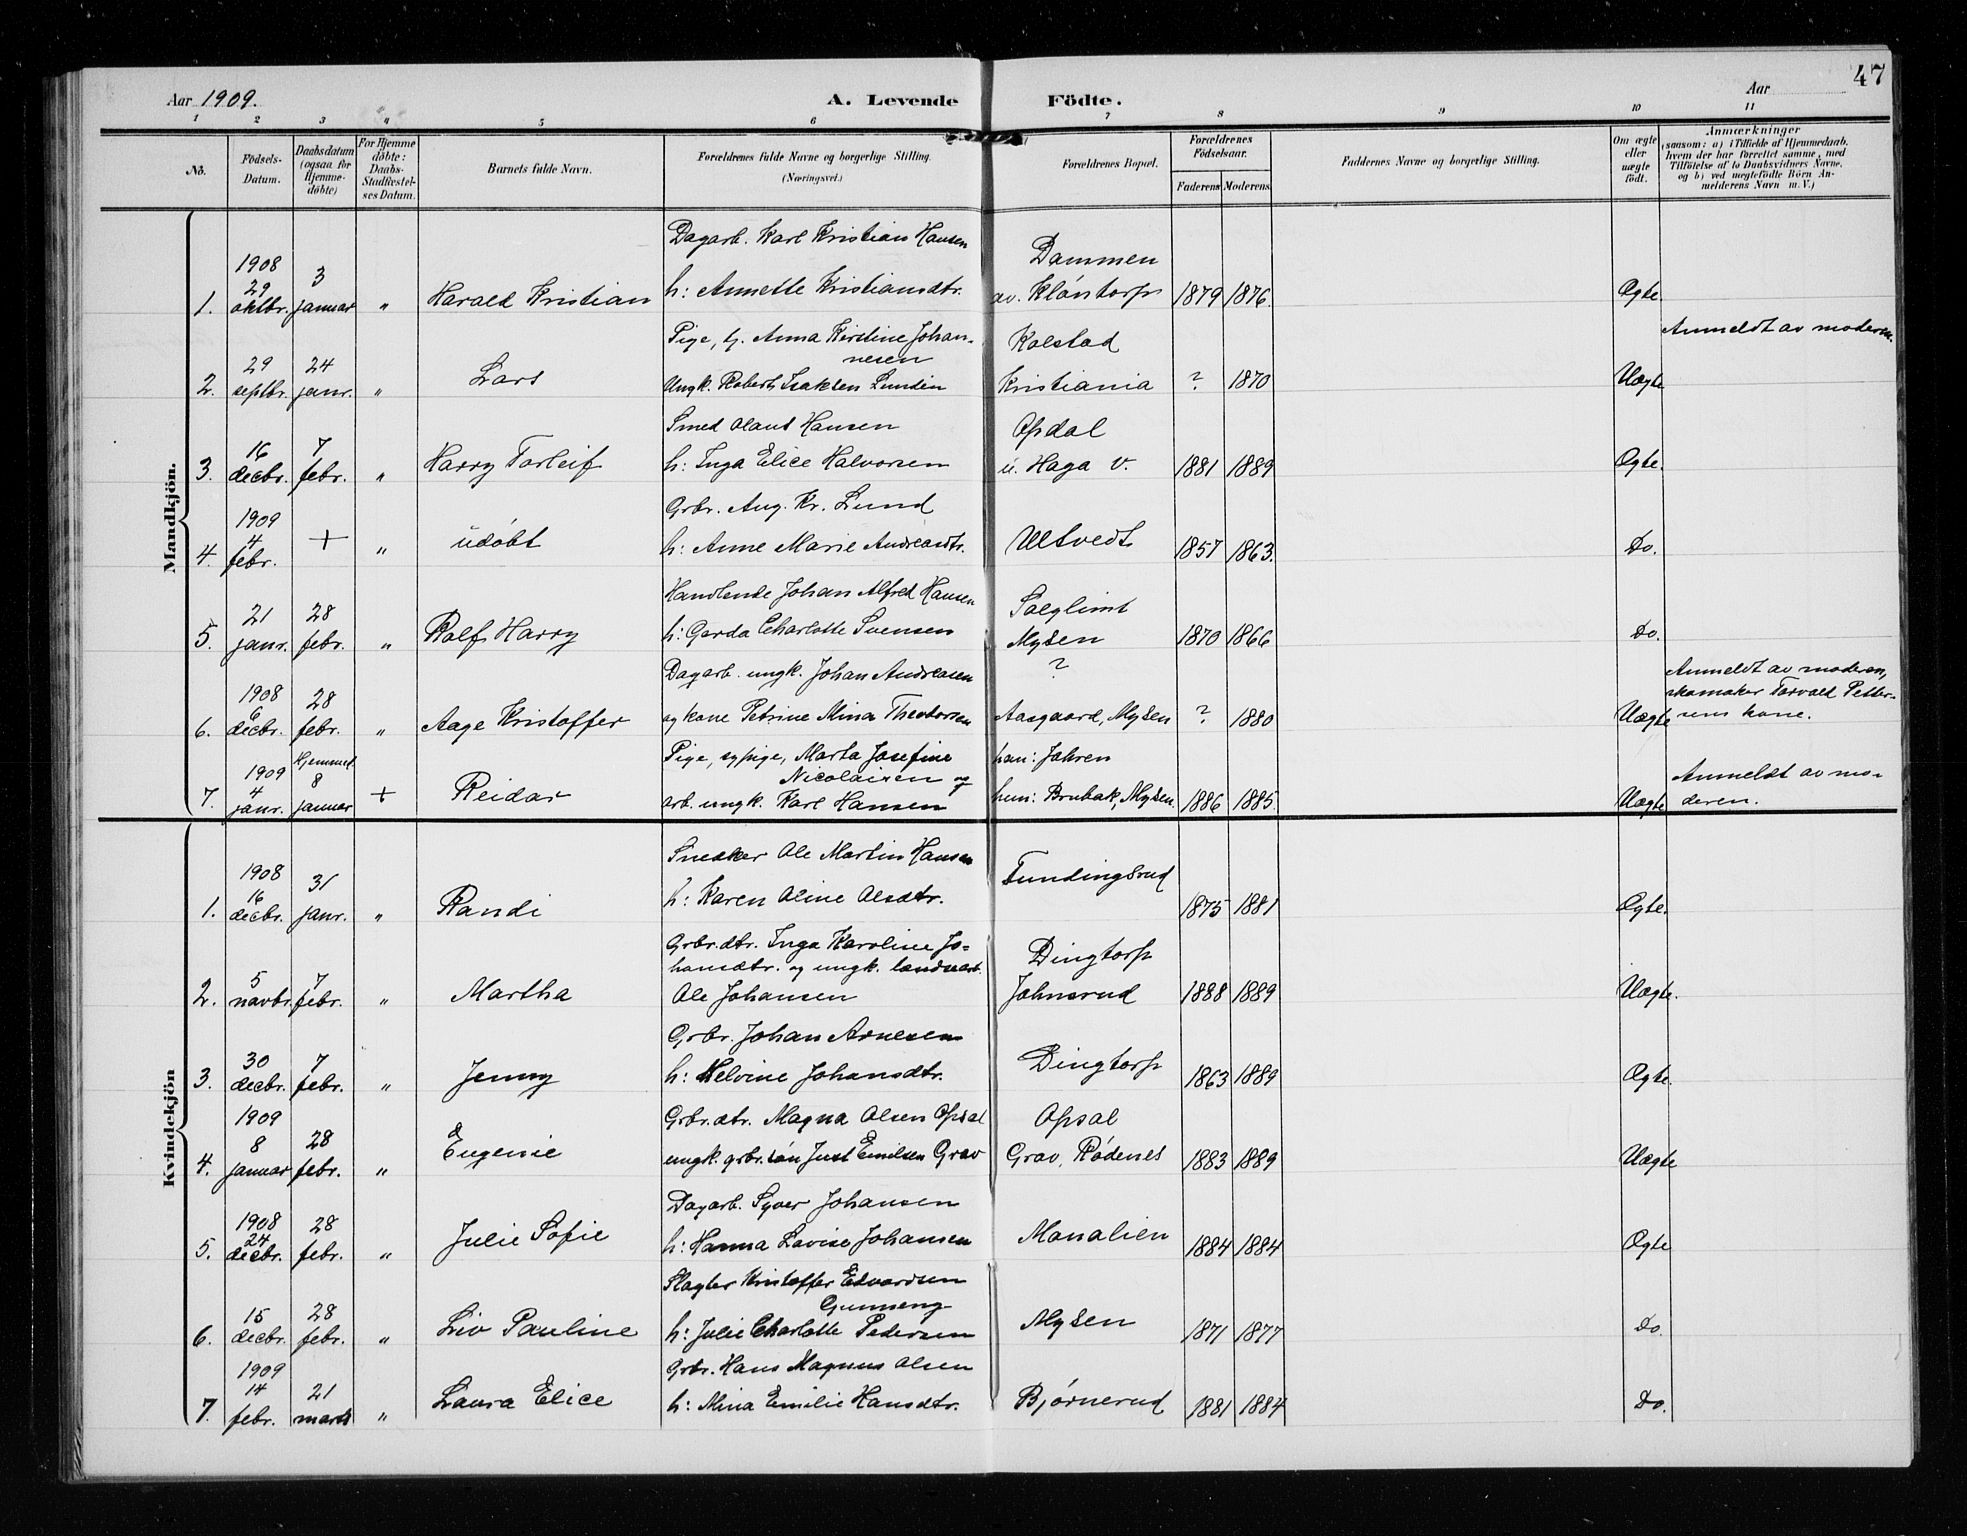 47
Aar 1909. A. Levende Födte. Aar
1 2 3 4 5 6 7 8 9 10 11
No. Födsels-Datum. Daabsdatum (ogsaa for Hjemme-döbte) For Hjemme döbte: Daabs-Stadfæstel-ses Datum. Barnets fulde Navn. Forældrenes fulde Navne og borgerlige Stilling. (Næringsvei.) Forældrenes Bopæl. Forældrenes Födselsaar. Faderens Moderens. Faddernes Navne og borgerlige Stilling. Om ægte eller uægte födt. Anmærkninger (saasom: a) i Tilfælde af Hjemmedaab, hvem der har forrettet samme, med Tilföielse af to Daabsvidners Navne, og b) ved uægtefödte Börn An-melderens Navn m. V.)
Mandkjön.
Dagarb. Karl Kristian Hansen Dammen
1. 1908 29 oktbr. 3 januar " Harald Kristian h: Annette Kristiansdtr. av. Klöntorp 1879 1876. Ægte.
Pige, g. Anna Kirstine Johan- Kolstad Anmeldt av moderen.
nesen
2. 29 septbr. 24 janr. " Lars Ungk. Robert Isaksen Lundin Kristiania ? 1870 Uægte
Smed Olaus Hansen Opdal
3. 16 decbr. 7 febr. " Harry Torleif h: Inga Elice Halvorsen u. Haga v. 1881 1889 Ægte.
Grbr. Aug. Kr. Lund
4. 1909 4 febr. + " udöbt h: Anne Marie Andreasdtr. Ultvedt 1857 1863. Do.
Handlende Johan Alfred Hansen Solglimt
5. 21 janr. 28 febr. " Rolf Harry h: Gerda Charlotte Svensen Mysen 1870 1866 Do.
Dagarb. ungk. Johan Andreasen ? Anmeldt av moderen,
skomaker Torvald Petter-
6. 1908 6 decbr. 28 febr. " Aage Kristoffer og kone Petrine Mina Theodorsen Aasgaard, Mysen ? 1880 Uægte sens kone.
Pige, sypige, Marta Josefine han: Jahren
Nicolaisen og Anmeldt av mo-
7. 1909 4 janr. Hjemmed. 8 januar + Reidar arb. ungk. Karl Hansen hun: Brubak, Mysen. 1886 1885. Uægte deren.
Kvindekjön
Snedker Ole Martin Hansen Tundingsrud
1. 1908 16 decbr. 31 janr. " Randi h: Karen Oline Olsdtr. 1875 1881 Ægte.
Grbr.dtr. Inga Karoline Jo- Dingtorp
hansdtr. og ungk. landmand.
2. 5 novbr. 7 febr. " Martha Ole Johansen Johnsrud 1888 1889 Uægte.
Grbr. Johan Arnesen Dingtorp
3. 30 decbr. 7 febr. " Jenny h: Helvine Johansdtr. 1863 1889 Ægte.
Grbr.dtr. Magna Olsen Opsal Opsal
4. 1909 8 januar 28 febr. " Eugenie ungk. grbr.sön Just Emilsen Grav Grav, Rödenes 1883 1889 Uægte
Dagarb. Syver Johansen
5. 1908 24 decbr. 28 febr. " Julie Sofie h: Hanna Lovise Johansen Monalien 1884 1884 Ægte
Slagter Kristoffer Edvardsen
Gunneng
6. 15 decbr. 28 febr. " Liv Pauline h: Julie Charlotte Pedersen Mysen 1871 1877 Do.
Grbr. Hans Magnus Olsen
7. 1909 14 febr. 21 marts " Laura Elice h: Mina Emilie Hansdtr. Bjørnerud 1881 1884 Do.